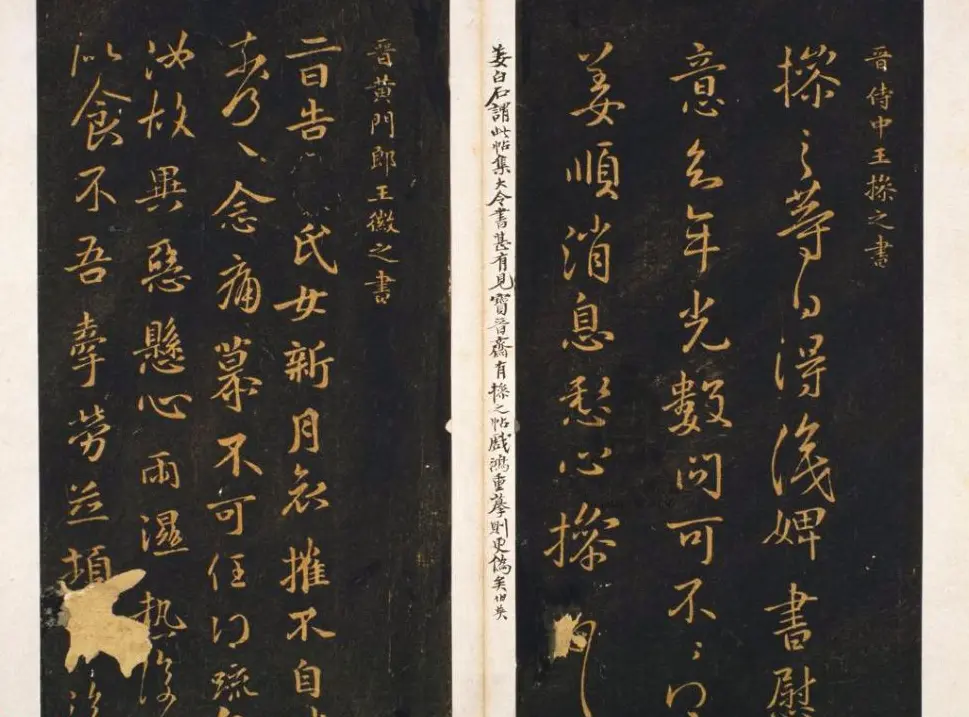 晉侍中王操之書
操之等白得識婢書慰
意去年光數問可不〻
姜順消息愁心操
姜白石謂此帖集大令書甚有見寶晉齋有操之帖戲鴻重摹則更偽矣伯英
晉黃門郎王徽之書
二日告 氏女新月哀摧不自
奈何〻念痛慕不可任得疏知
汝故異惡懸心雨濕熱復
以食不吾牽勞並頓